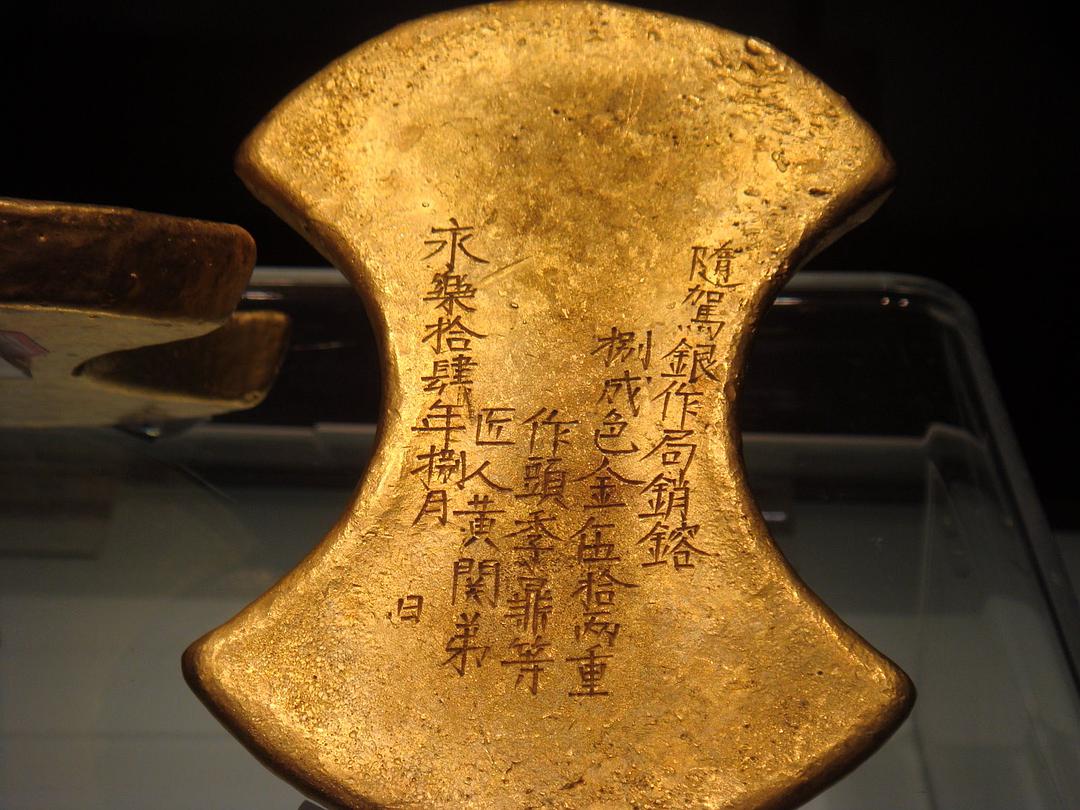 隨駕銀作局銷鎔
捌成色金伍拾兩重
作頭季鼒等
匠人黃関弟
永樂拾肆年捌月
日